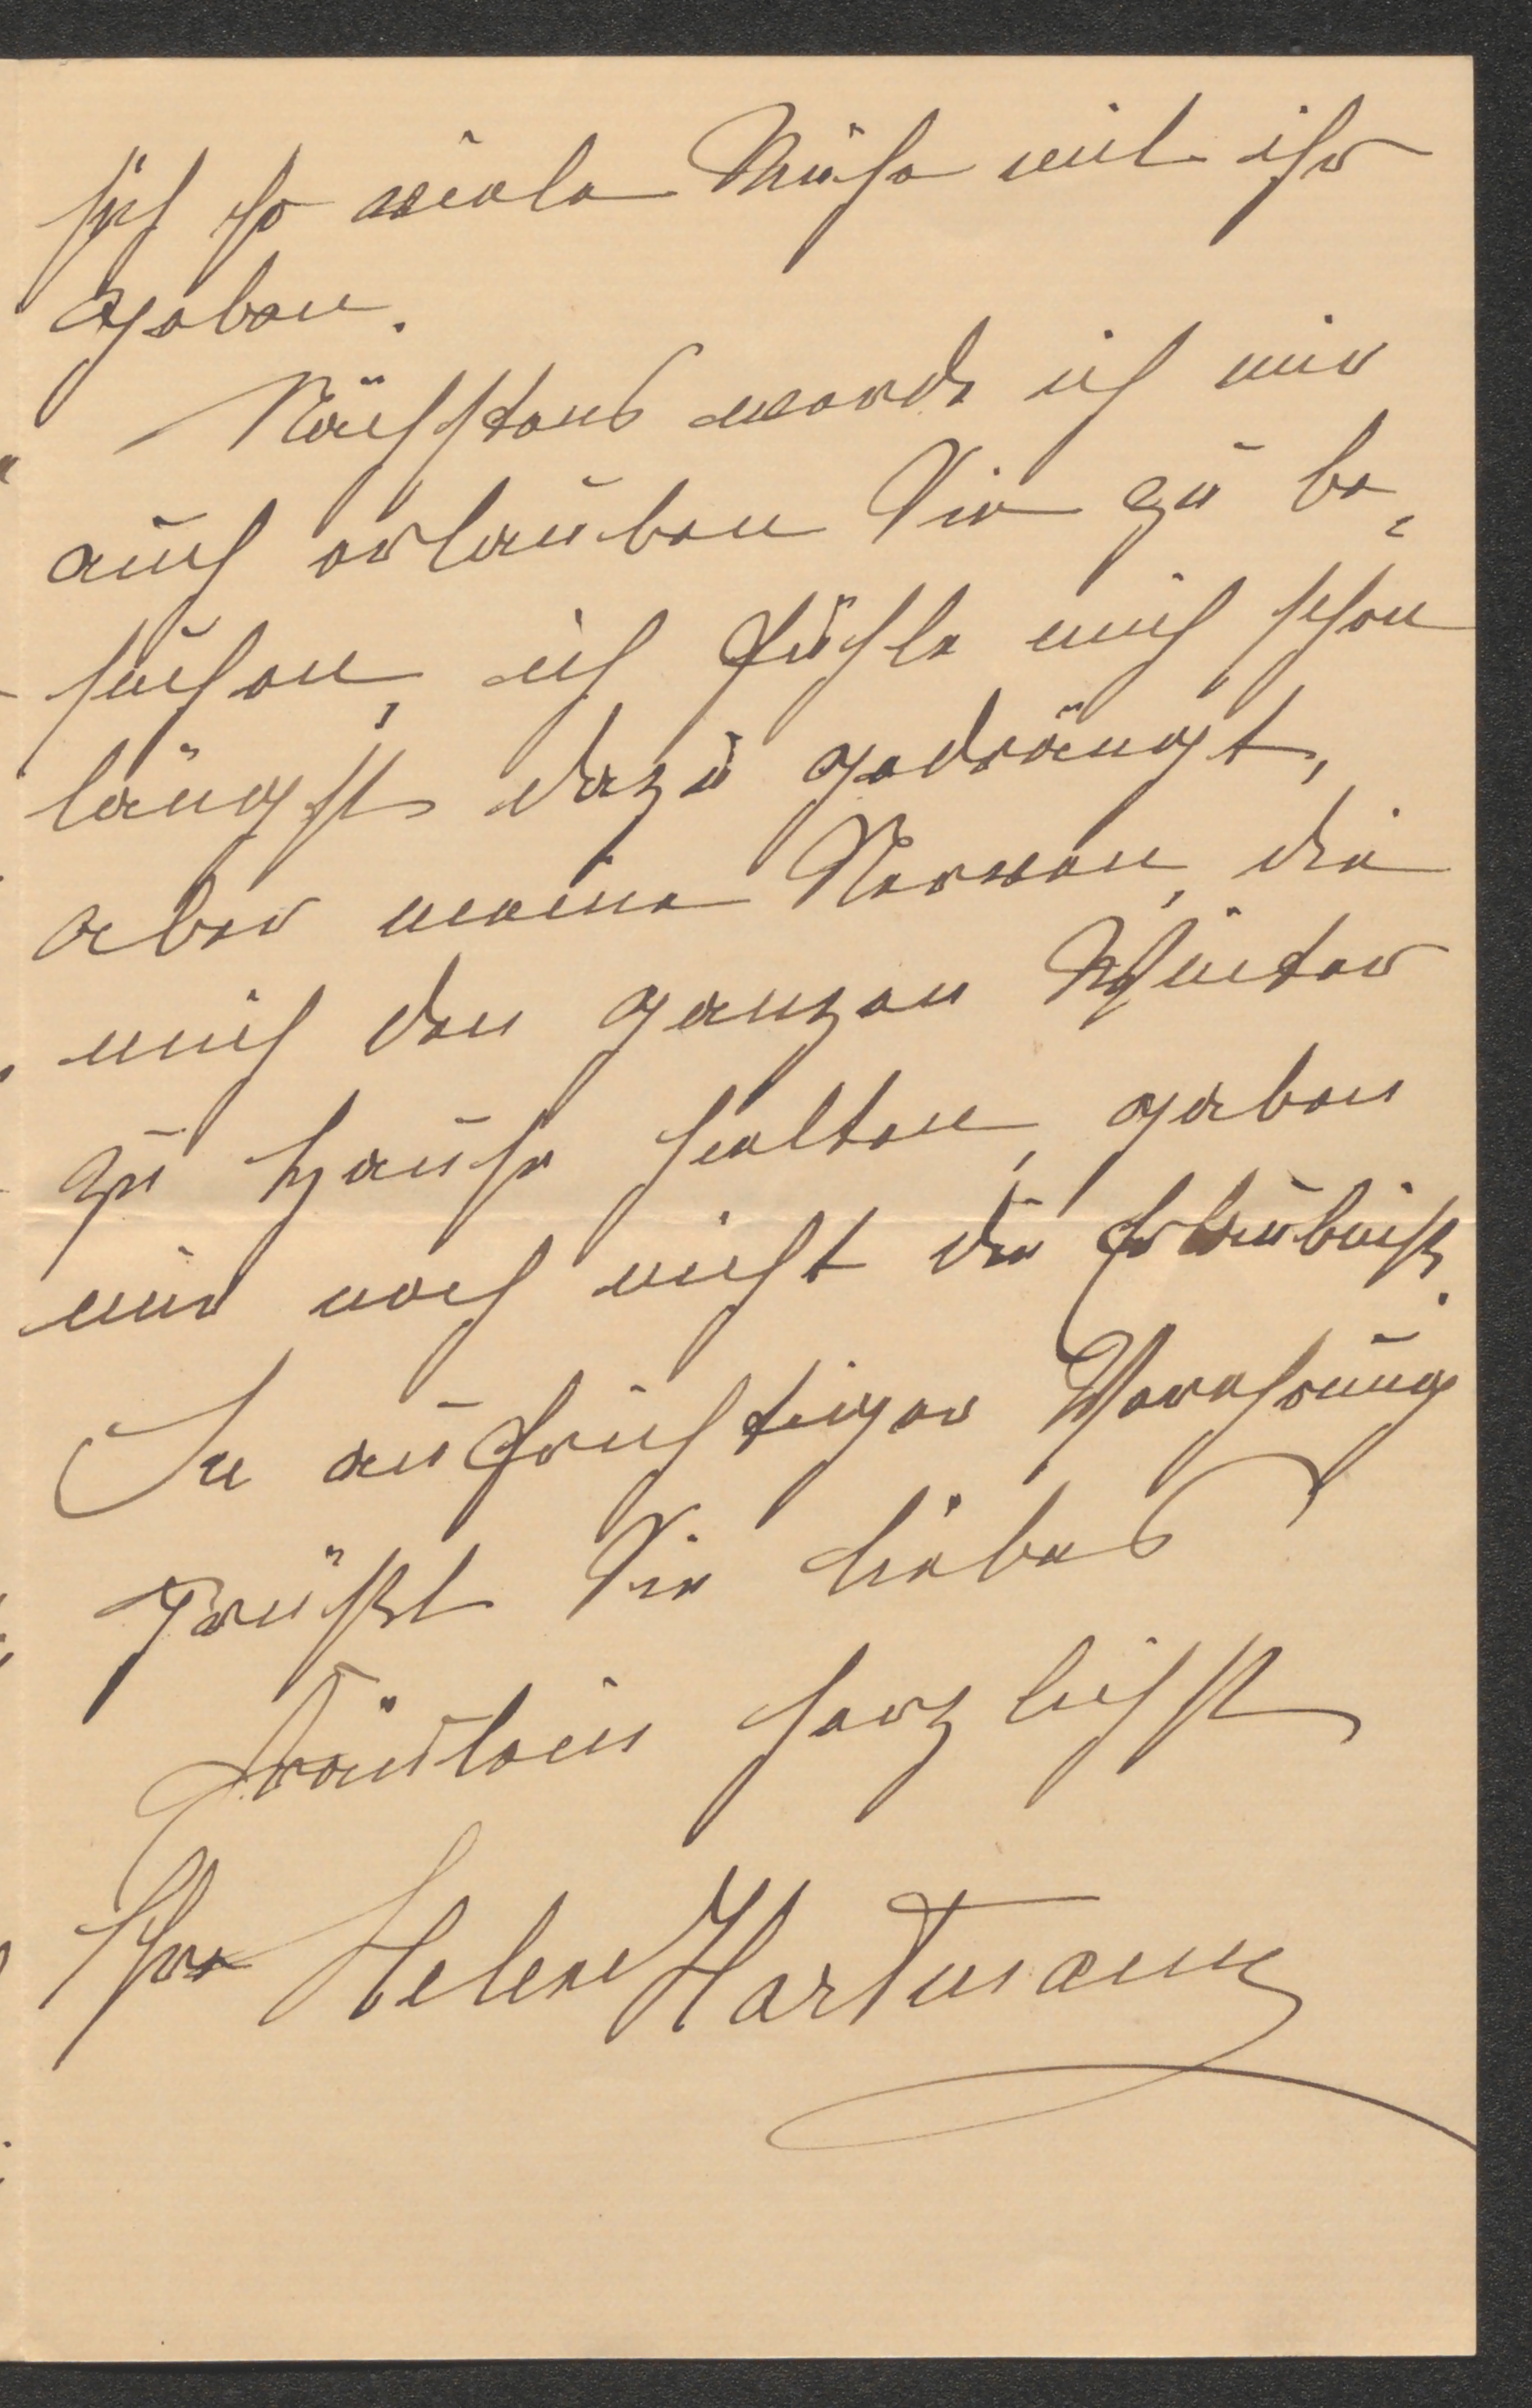 sich so viele Mühe mit ihr
geben.
Nächstens werde ich mir
auch erlauben Sie zu be-
suchen, ich fühle mich schon
längst dazu gedrängt,
aber meine Nerven, die
mich den ganzen Winter
zu Hause halten, gaben
mir noch nicht die Erlaubniß.
In aufrichtiger Verehrung
grüßt Sie liebes
Fräulein herzlichst
Ihre Helene Hartmann